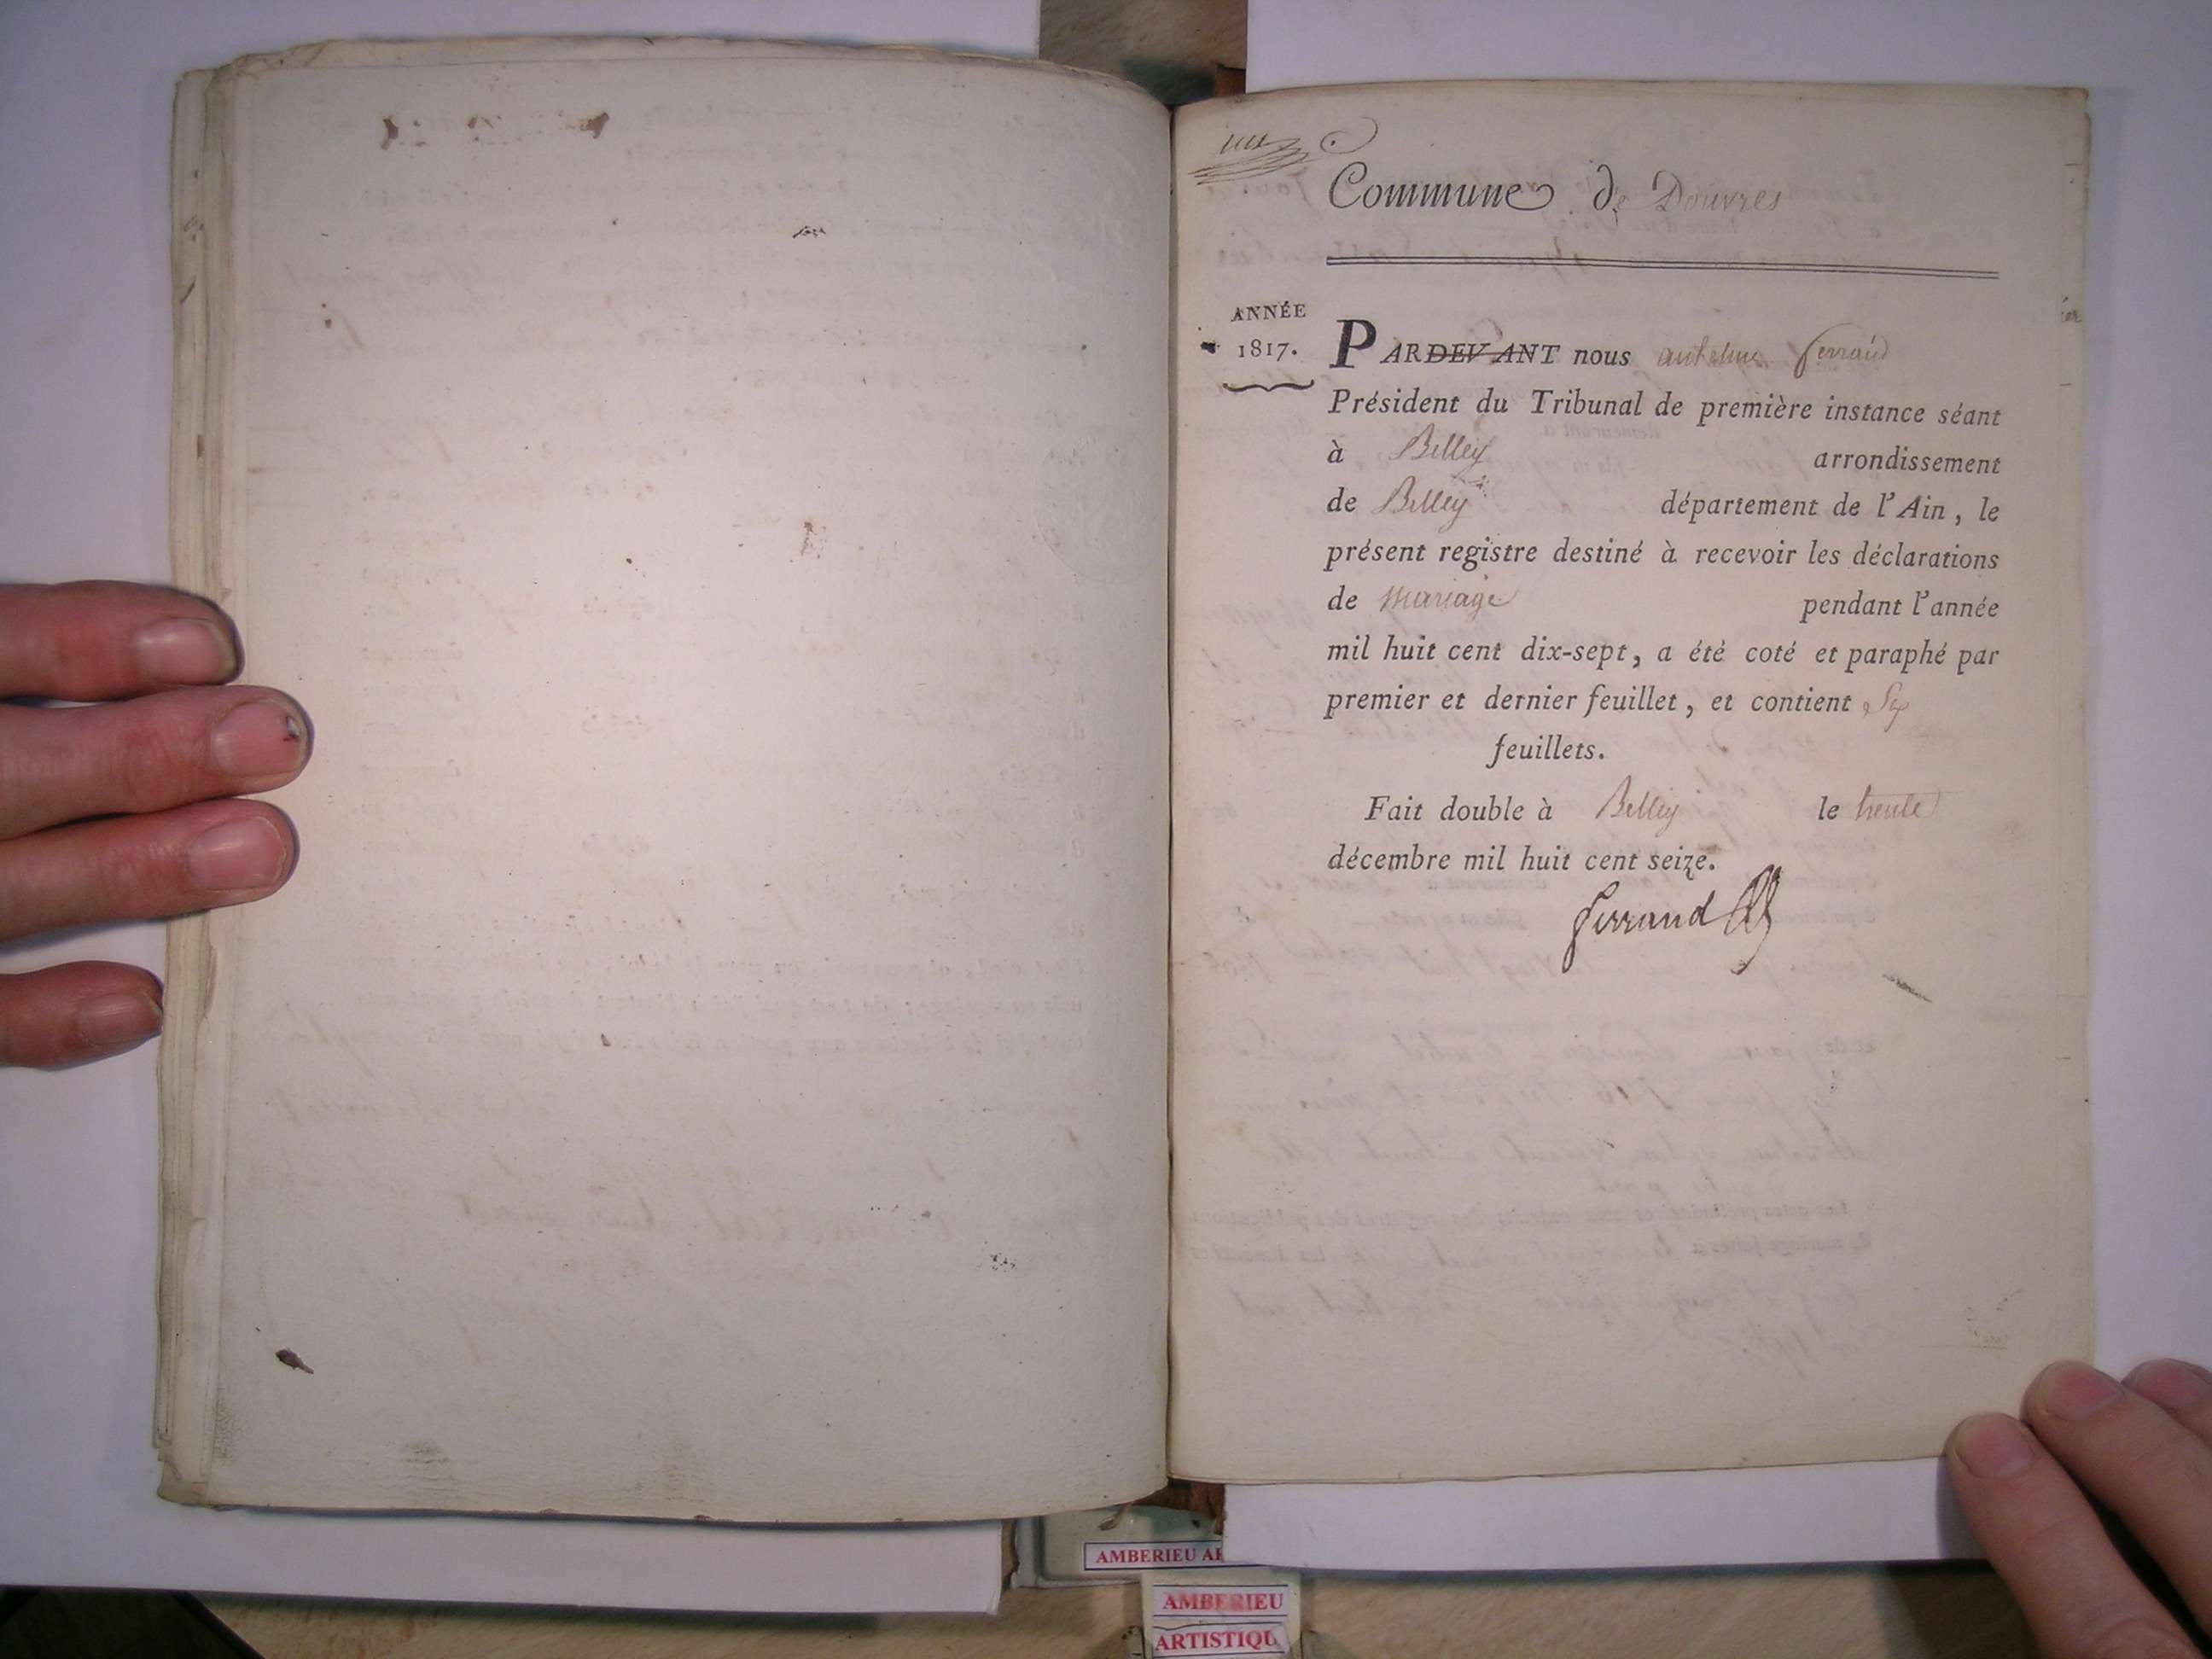 Commune de Douvres
ANNÉE
1817.
PARDEVANT nous anthelme ferrand
Président du Tribunal de première instance séant
à Belley arrondissement
de Belley département de l'Ain, le
présent registre destiné à recevoir les déclarations
de mariage pendant l'année
mil huit cent dix-sept, a été coté et paraphé par
premier et dernier feuillet, et contient Six
feuillets.
Fait double à Belley le trente
décembre mil huit cent seize.
ferrand
AMBERIEU AR
AMBERIEU
ARTISTIQU